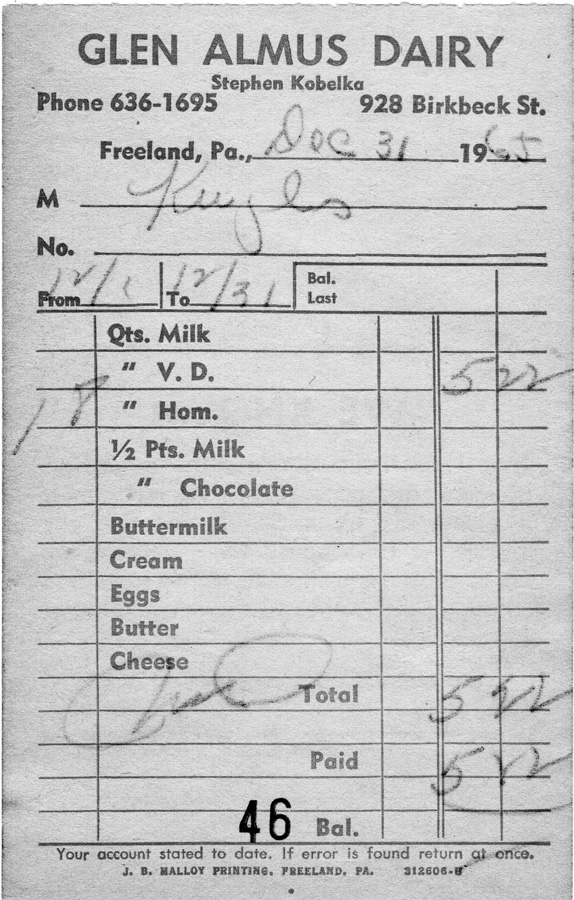 GLEN ALMUS DAIRY
Stephen Kobelka
Phone 636-1695 928 Birkbeck St.
Freeland, Pa., Dec 31 1965
M Kuzles
No.
From 12/1 To 12/31 Bal. Last
Qts. Milk
" V. D. 5 22
18 " Hom.
½ Pts. Milk
" Chocolate
Buttermilk
Cream
Eggs
Butter
Cheese
Total 5 22
Paid 5 22
46 Bal.
Your account stated to date. If error is found return at once.
J. B. MALLOY PRINTING, FREELAND, PA. 312606-B